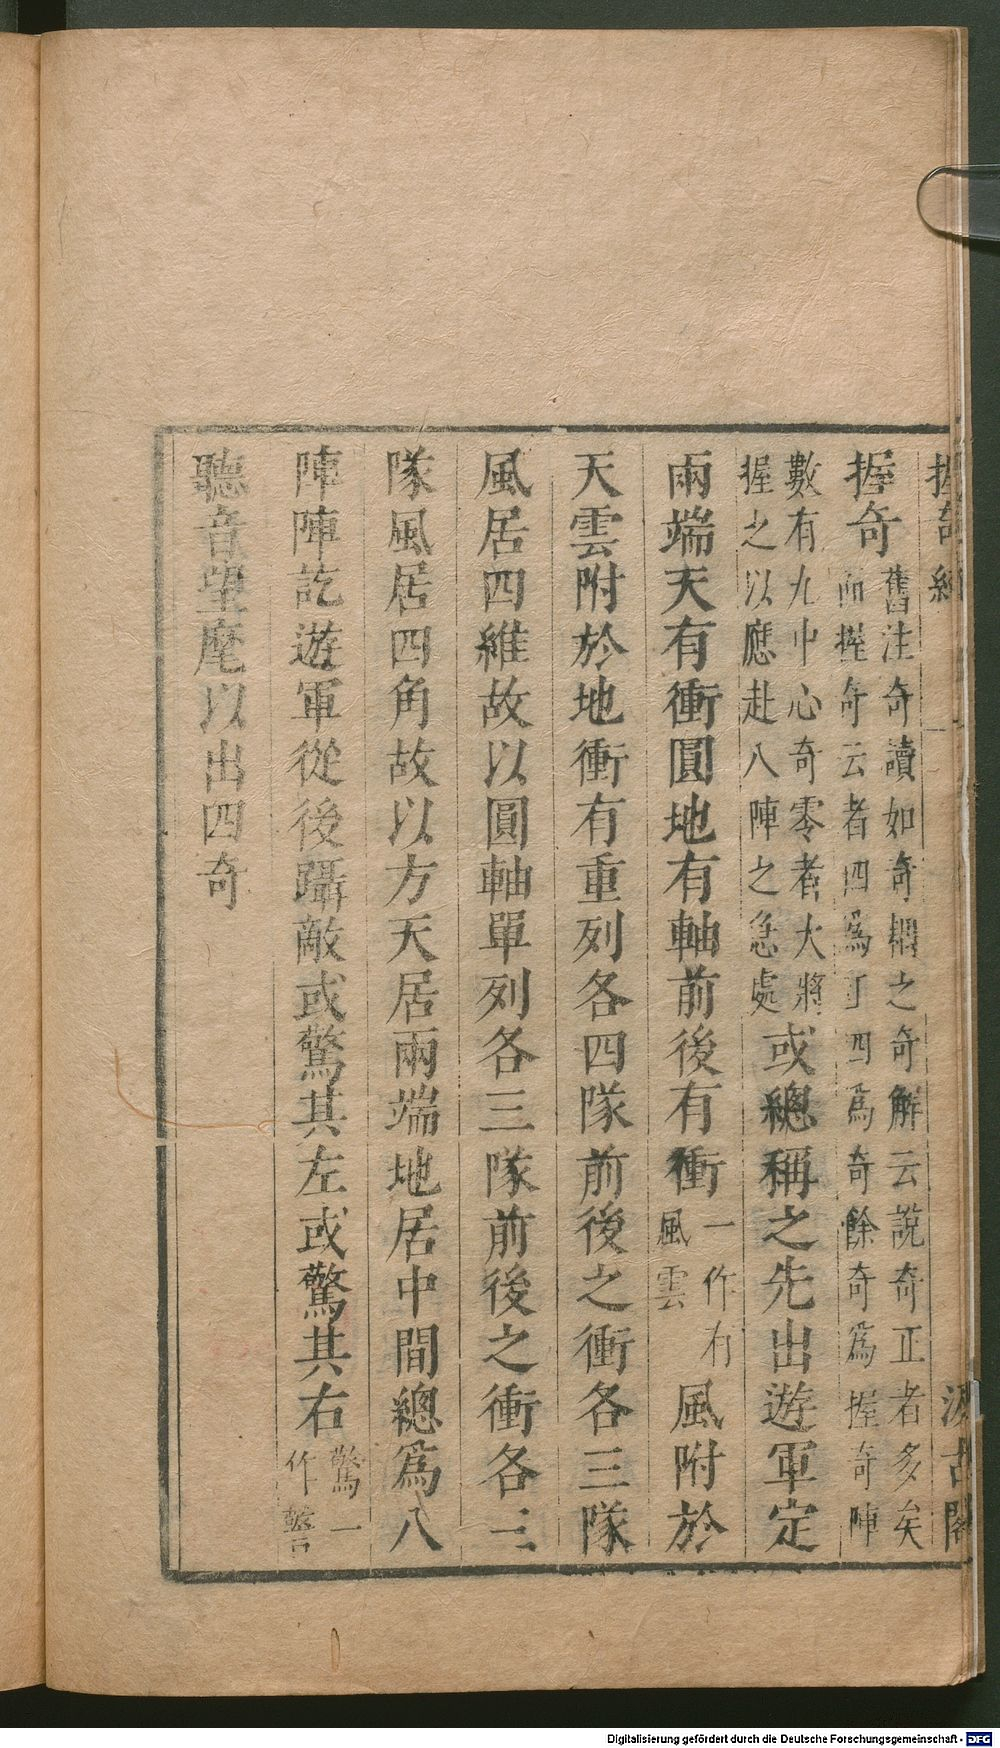 握奇經 一 汲古閣
握奇
舊注奇讀如奇耦之奇解云說奇正者多矣
而握奇云者四爲丁四爲奇餘奇爲握奇陣
數有九中心奇零者大將
握之以應赴八陣之急處
或總稱之先出遊軍定
兩端天有衝圓地有軸前後有衝
一作有
風雲
風附於
天雲附於地衝有重列各四隊前後之衝各三隊
風居四維故以圓軸單列各三隊前後之衝各三
隊風居四角故以方天居兩端地居中間總爲八
陣陣訖遊軍從後躡敵或驚其左或驚其右
驚一
作警
聽音望麾以出四奇
Digitalisierung gefördert durch die Deutsche Forschungsgemeinschaft - DFG